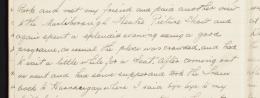 took and met my friend and paid another visit
to the Marlborough Theatre Picture Show and
again spent a splendid evening seeing a good
programme, as usual the place was crowded, and had
to wait a little while for a seat, after coming out
we went and had some supper and took the tram
back to I said bye bye to my